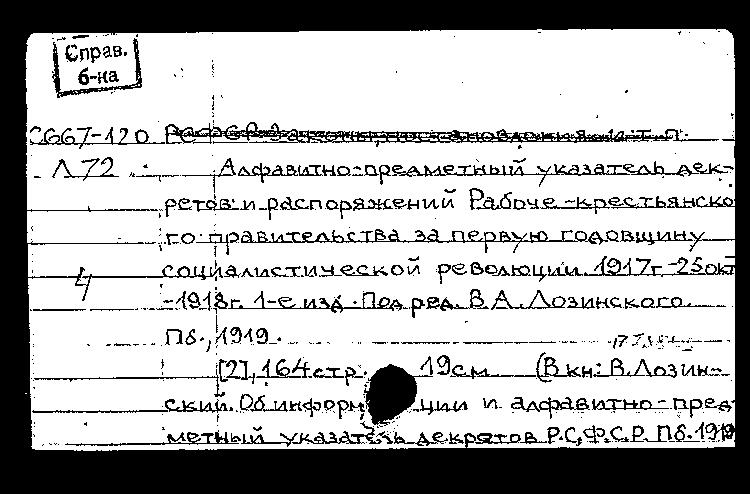 Справ.
б-ка
С667-120 РСФСР. Законы, постановления и т. п.
Л72 Алфавитно-предметный указатель дек-
ретов и распоряжений Рабоче-крестьянско
го правительства за первую годовщину
социалистической революции. 1917г.-25окт
4
-1918г. 1-е изд. Под ред. В.А. Лозинского.
Пб., 1919.
[2], 164стр. 19см (В кн: В.Лозин-
ский. Об информ ции и алфавитно-пред
метный указатель декретов Р.С.Ф.С.Р. Пб.1919